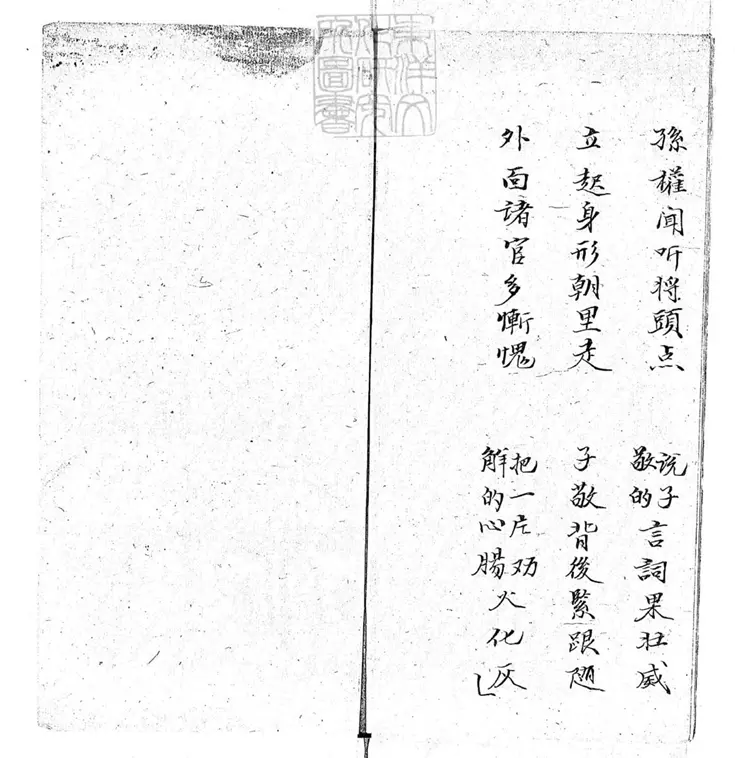 孫權闻听将頭点 说子敬的言詞果壮威
立起身形朝里走 子敬背後緊跟随
外面諸官多慚愧 把一片劝解的心腸火化灰
東洋文化研究所圖書